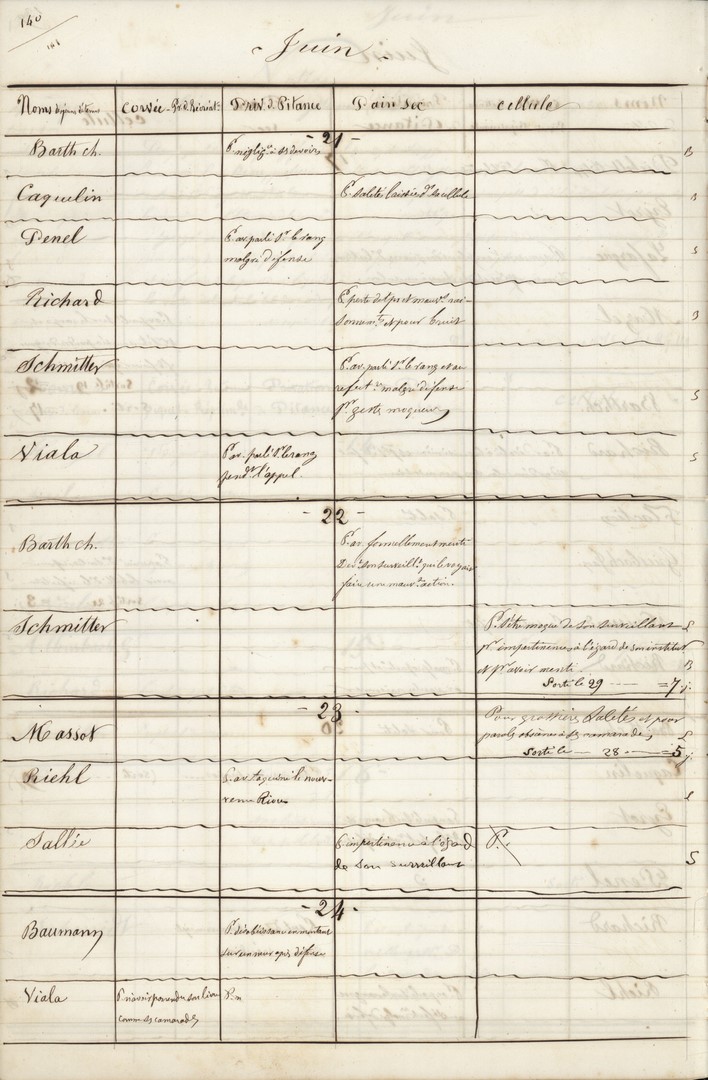 140
141
Juin
Noms
Corvée
Priv. d. Pitance
Pain Sec
Cellule
- 21 -
Barth ch.
P. néglig.ce à ses devoirs
B
Caquelin
P. saletés laissées ds sa cellule
B
Penel
P. av. parlé sr le rang
malgré défense
S
Richard
P. perte de tps et mauv.
et pour bruit
B
Schmitter
P. av. parlé sr le rang et au
refect.re malgré défense
pr geste moqueur
S
Viala
P. av. parlé sr le rang
pendt l'appel
S
- 22 -
Barth ch.
P. av. formellement menti
devt son surveillt qui le voyait
faire une mauvse action.
Schmitter
P. s'être moqué de son surveillant
pr impertinences à l'égard de son institutr
et pr avoir menti
Sorti le 29 = 7 j.
S
B
- 23 -
Massot
Pour grossières saletés et pour
paroles obscènes à ses camarades
Sorti le 28 = 5 j
S
Riehl
P. av. taquiné le nouv-
veau Rioux
S
Sallée
P. impertinence à l'égard
de son surveillant
P.
S
- 24 -
Baumann
P. désobéissance en montant
sur un mur après défense
Viala
P. n'avoir pas rendu son livre
comme ses camarades
P. n